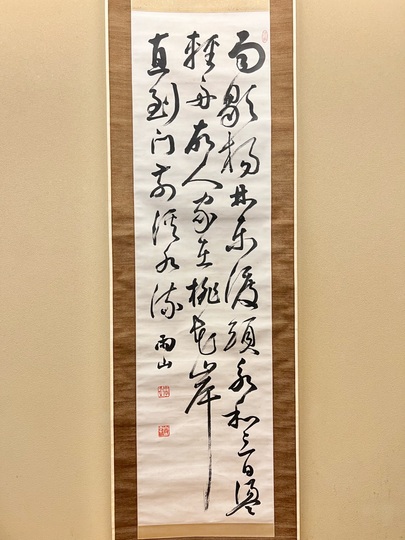 雨歇楊林東渡頭永和三日盪
輕舟故人家在桃花岸
直到門前溪水流
雨山